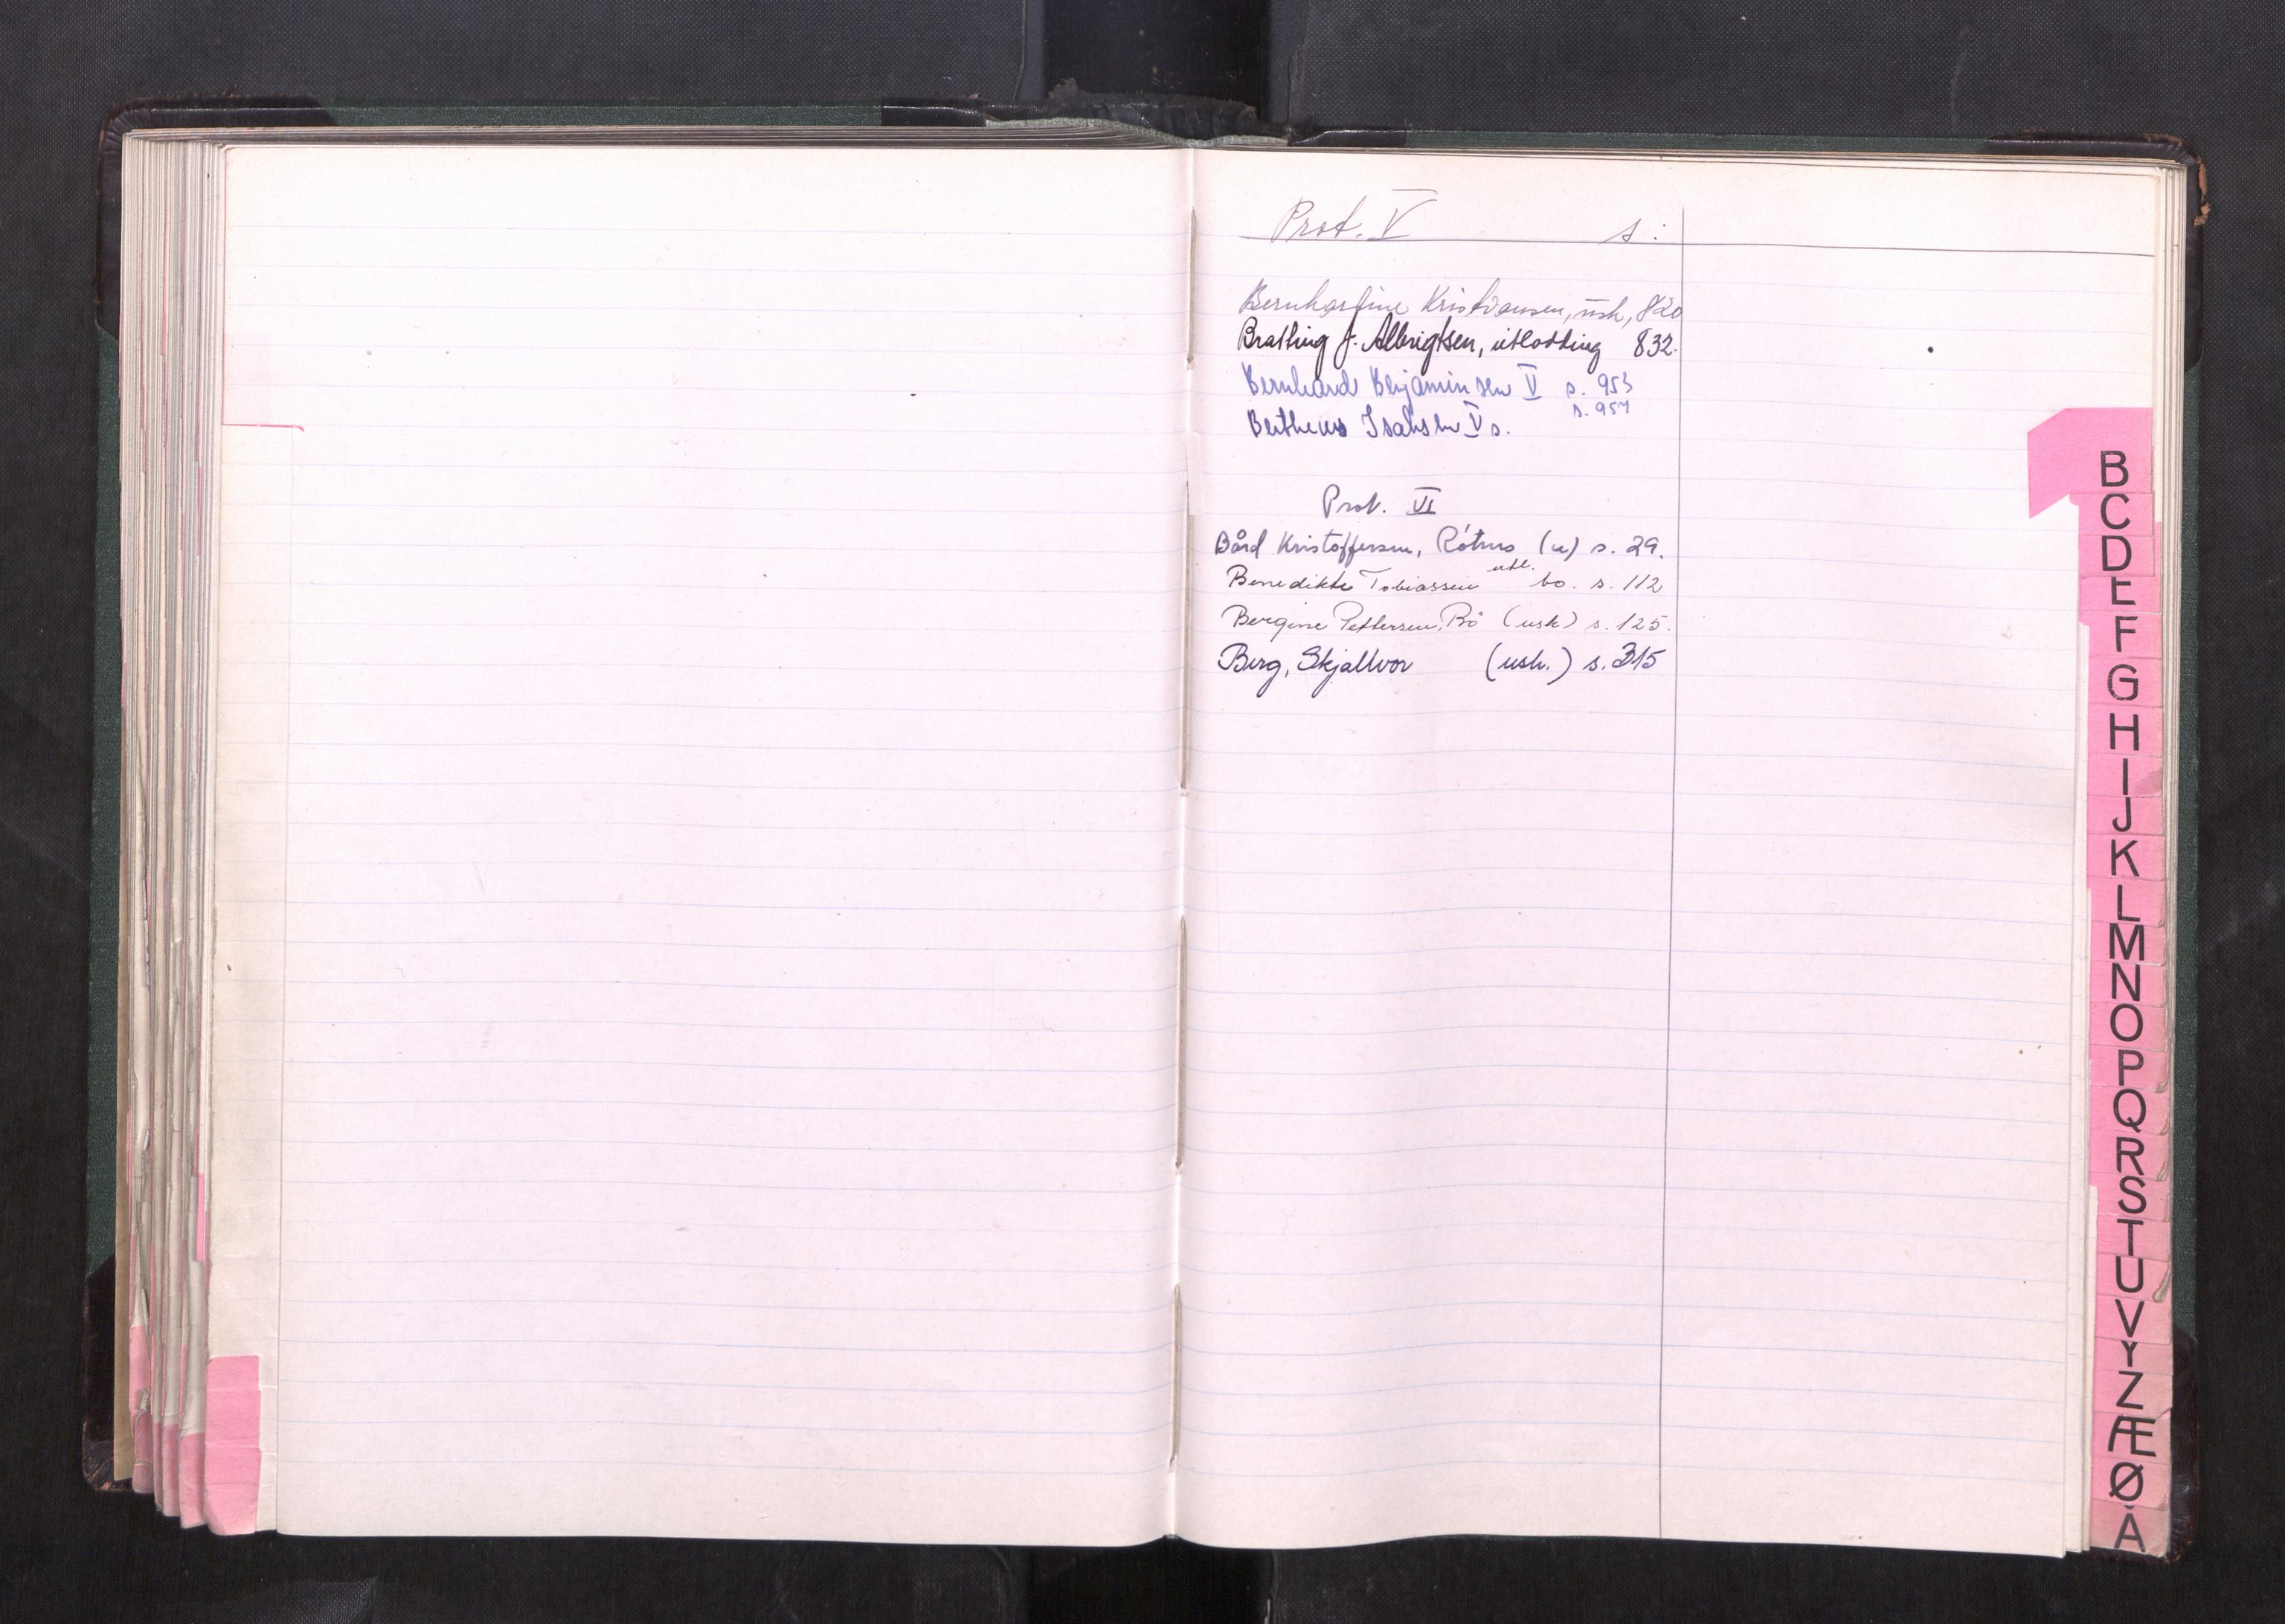 Prot. V s:
Bernhardine Kristiansen, ush, 820
Brathing J. Albrigtsen, utlodding 832.
Bernhard Benjaminsen V s. 953
s. 954
Bertheus Isaksen V s.
Prot. VI
Bård Kristoffersen, (u) s. 29.
Benedikte Tobiassen utl. bo. s. 112
Bergine Pettersen, Bö (usk) s. 125.
Berg, Skjallvor (ush.) s. 315
B
C
D
E
F
G
H
I
J
K
L
M
N
O
P
Q
R
S
T
U
V
Y
Z
Æ
Ø
Å